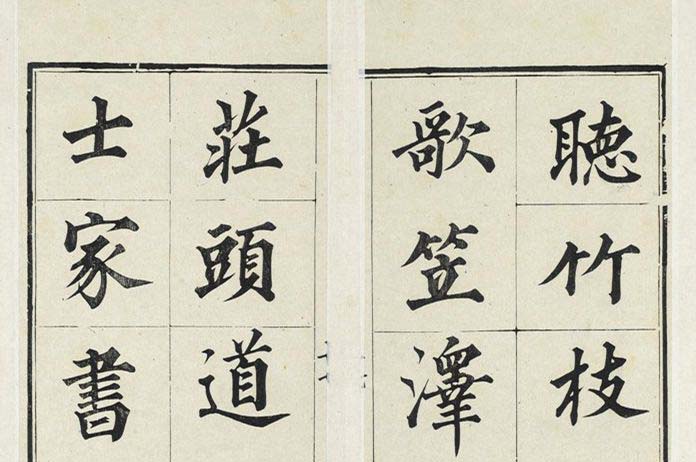 聽竹枝
歌笠澤
莊頭道
士家書